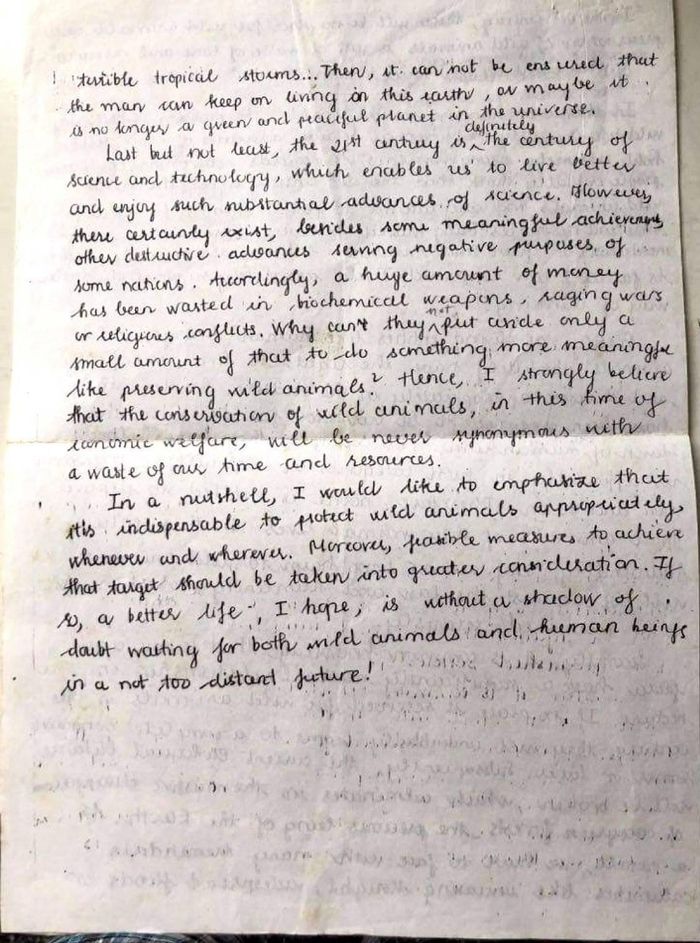 terrible tropical storms... Then, it can not be ensured that
the man can keep on living in this earth, or maybe it
is no longer a green and peaceful planet in the universe.
Last but not least, the 21st century is definitely the century of
science and technology, which enables us to live better
and enjoy such substantial advances of science. However,
there certainly exist, besides some meaningful achievements,
other destructive advances serving negative purposes of
some nations. Accordingly, a huge amount of money
has been wasted in biochemical weapons, raging wars
or religious conflicts. Why can't they not put aside only a
small amount of that to do something more meaningful
like preserving wild animals? Hence, I strongly believe
that the conservation of wild animals, in this time of
economic welfare, will be never synonymous with
a waste of our time and resources.
In a nutshell, I would like to emphasize that
it's indispensable to protect wild animals appropriately,
whenever and wherever. Moreover, feasible measures to achieve
that target should be taken into greater consideration. If
so, a better life, I hope, is without a shadow of
doubt waiting for both wild animals and human beings
in a not too distant future!